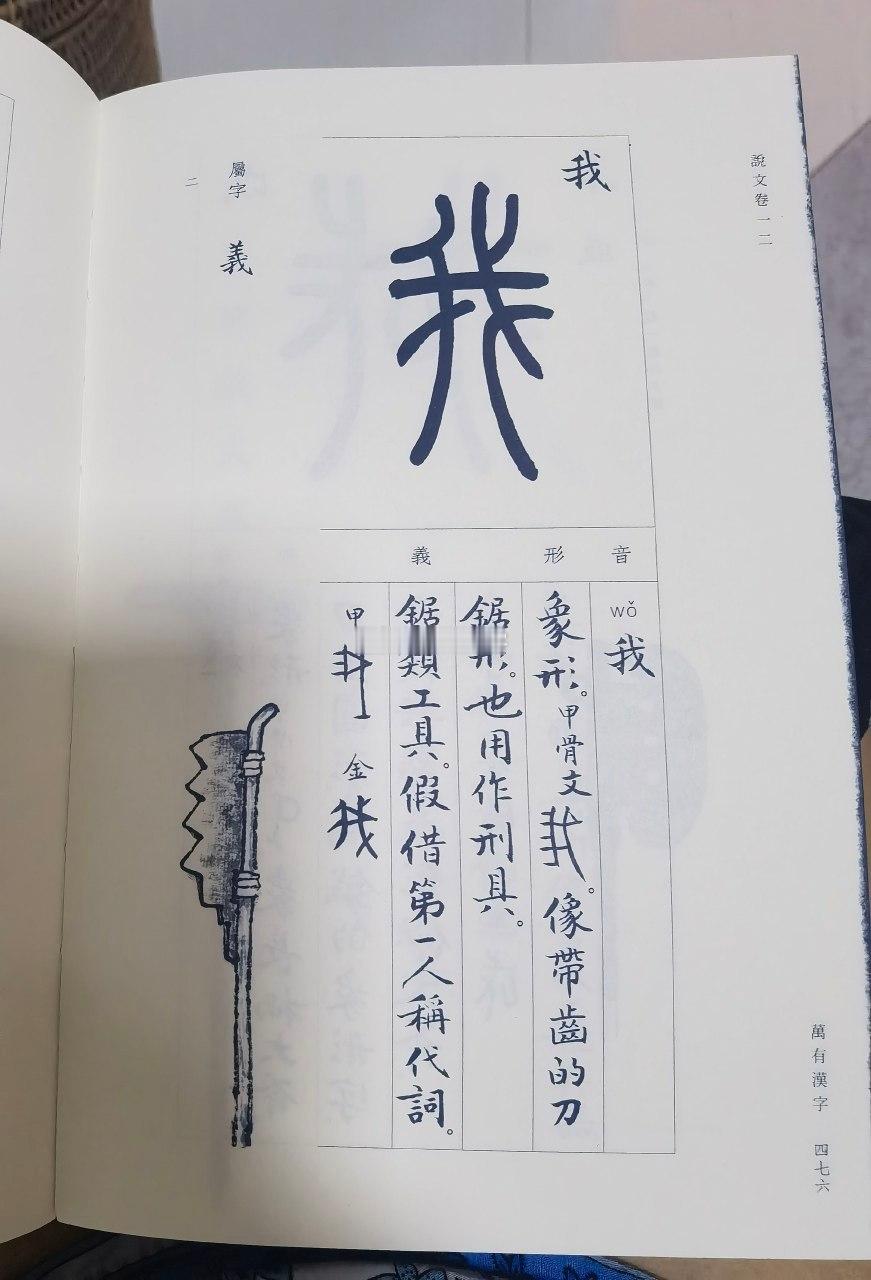 說文卷一二
萬有漢字 四七六
我
我
音
形
義
wǒ
我
象形。甲骨文我。像帶齒的刀
鋸形。也用作刑具。
鋸類工具。假借第一人稱代詞。
甲 我 金 我
屬字 義
二